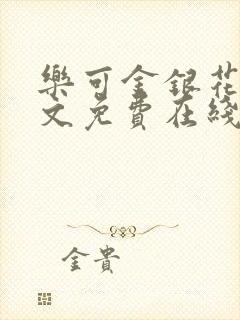 樂可金銀花
文免費在綫
金貴